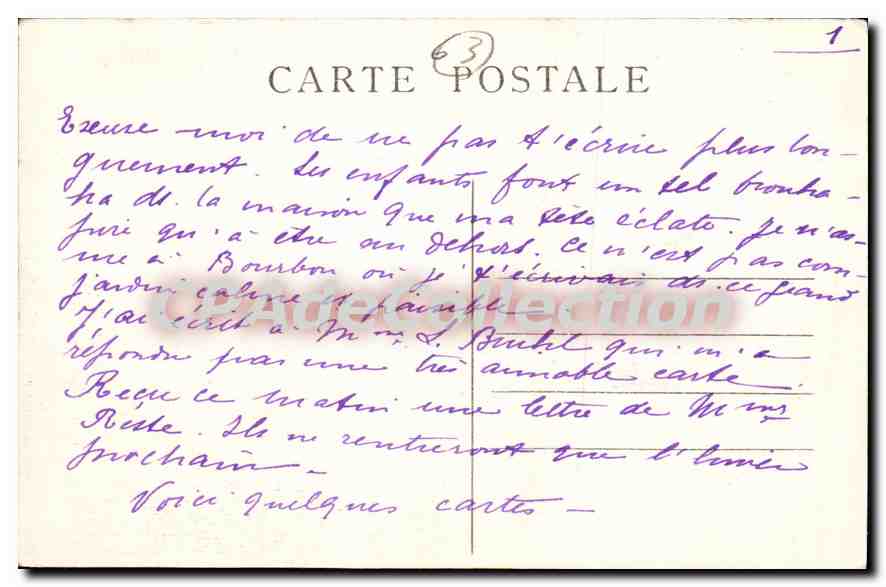 1
63
CARTE POSTALE
Excuse moi de ne pas t'écrire plus lon-
guement. Les enfants font un tel brouha-
ha ds. la maison que ma tête éclate. Je n'as-
pire qu'à être au dehors. Ce n'est pas com-
me à Bourbon où je t'écrivais ds. ce grand
jardin calme et paisible.
CPAdeCollection
J'ai écrit à Mme L. qui m'a
répondu par une très aimable carte.
Reçu ce matin une lettre de Mme
Réste. Ils ne rentreront que l'hiver
prochain.
Voici quelques cartes -